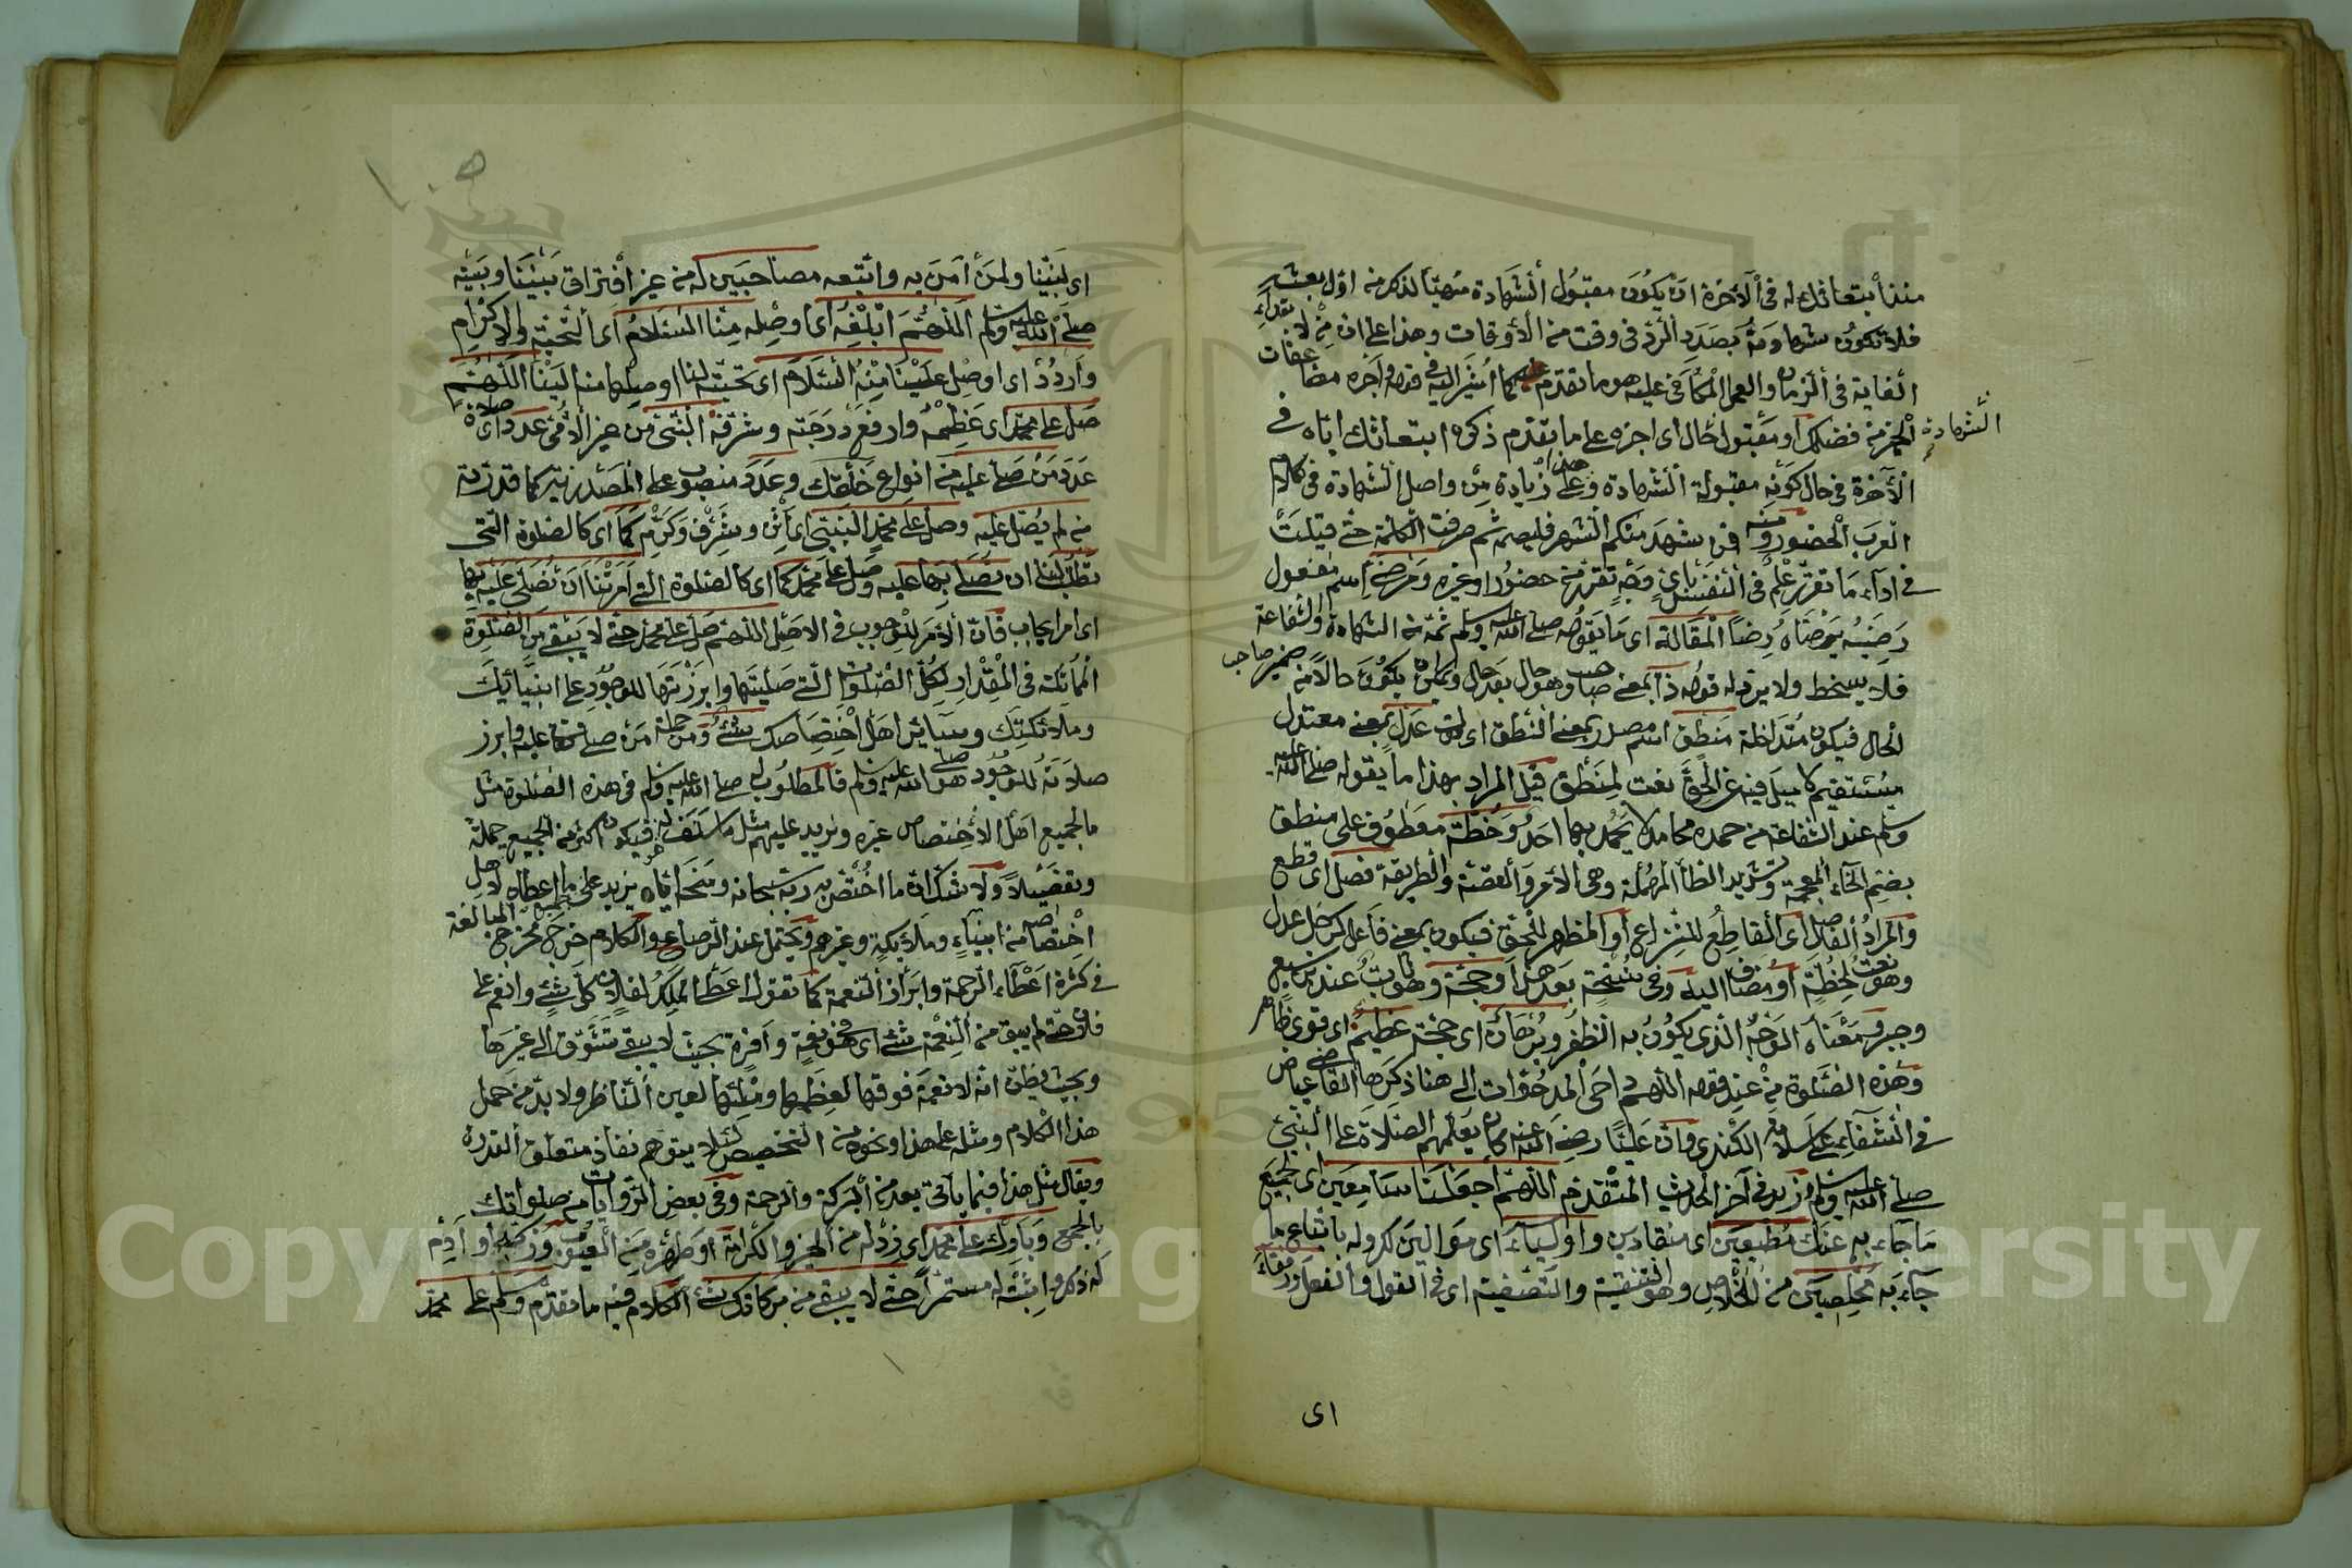 منذ ابتعاثك له في الآخرة ان يكون مقبول الشهادة مهيأ لذكر منه اول بعثه
فلا تكون شهادته بصدد الرد في وقت من الأوقات وهذا على ان من لابتداء
الغاية في الزمان والعمل المكافى عليه هو ما تقدم كما اشير اليه في قوله واجزه مضاعفات
الخير من فضلك او مقبول حال اى اجزه على ما تقدم ذكره ابتعاثك اياه في
الشهادة
الآخرة في حال كونه مقبولة الشهادة وعلى هذا زيادة من واصل الشهادة في كلام
العرب الحضور ومنه فمن شهد منكم الشهر فليصمه ثم صرفت الكلمة حتى قيلت
في اداء ما تقرر علمه في النفس بأي وجه تقرر من حضور او غيره ومرضى اسم مفعول
رضيه يرضاه رضا المقالة اى ما يقوله صلى الله عليه وسلم ثمة من الشهادة والشفاعة
فلا يسخط ولا يرد له قوله ذا بمعنى صاحب وهو حال بعد حال ويمكن ان يكون حالا من ضمير صاحب
الحال فيكون متداخلة منطق اسم مصدر بمعنى النطق اى عدل بمعنى معتدل
مستقيم لا ميل فيه عن الحق نعت لمنطق قيل المراد بهذا ما يقوله صلى الله عليه
وسلم عند الشفاعة من حمده محامد لا يحمد بها احد وخطة معطوف على منطق
بضم الخاء المعجمة وتشديد الطاء المهملة وهى الأمر والقصة والطريقة فصل اى قطع
والمراد الفاصل اى القاطع للنزاع او المظهر للحق فيكون بمعنى فاعل كرجل عدل
وهو نعت لخطة او مضاف اليه وفى نسخة بعد هذا وحجة وهو ثابت عند بن سبع
وجبر ومعناه الوجه الذى يكون به الظفر وبرهان اى حجة عظيم اى قوى ظاهر
وهذه الصلوة من عند قوله اللهم داحى المدحوات الى هنا ذكرها القاضى عياض
في الشفاء عن سلامة الكندى وان عليا رضى الله عنه كان يعلمهم الصلاة على النبى
صلى الله عليه وسلم زيد في آخر الحديث المتقدم اللهم اجعلنا سامعين اى لجميع
ما جاء به عنك مطيعين اى منقادين واولياء اى موالين لكم وله باتباع ما
جاء به مخلصين من الاخلاص وهو التنقية والتصفية اى في القول والفعل ورفقاء
اى
اى لنبينا ولمن آمن به واتبعه مصاحبين له من غير افتراق بيننا وبينه
صلى الله عليه وسلم اللهم ابلغه اى اوصله منا السلام اى التحية والاكرام
واردد اى اوصل علينا منه السلام اى تحيته لنا او صلها منه الينا اللهم
صل على محمد اى عظمه وارفع درجته وشرفه النبى من غير الأمى عدد اى صلاة
عدد من صلى عليه من انواع خلقك وعدد منصوب على المصدرية كما قدرته
من لم يصل عليه وصل على محمد النبى اى اثن وشرف وكرم كما اى كالصلوة التى
تطلب لنا ان نصلى بها عليه وصل على محمد كما اى كالصلوة التى امرتنا ان نصلى عليه بها
اى امر ايجاب فان الأمر للوجوب في الاصل اللهم صل على محمد حتى لا يبقى من الصلوة
المماثلة في المقدار لكل الصلوات التى صليتها وابرزتها للوجود على انبيائك
وملائكتك وسائر اهل اختصاصك شئ ومن جملة من صلى عليه وابرز
صلاته للوجود هو صلى الله عليه وسلم فالمطلوب له صلى الله عليه وسلم في هذه الصلوة مثل
ما لجميع اهل الاختصاص غيره ونزيد عليهم مثل ما سلف له فيكون اكثر من الجميع جملة
وتفصيلا ولا شك ان ما اختص به ربه سبحانه ومنحه اياه يزيد على ما اعطاه لاهل
اختصاصه من انبياء وملائكة وغيرهم ويحتمل عند الرصاع والكلام خرج مخرج المبالغة
في كثرة اعطاء الرحمة وابراز النعمة كما تقول اعطى الملك لفلان كل شئ وانعم على
فلان حتى لم يبق من النعمة شئ اى نعمة وافرة بحيث لا يبقى تشوق الى غيرها
وبحيث يظن انه لا نعمة فوقها لعظمها وملئها لعين الناظر ولا بد من حمل
هذا الكلام ومثله على هذا ونحوه من التخصيص لئلا يتوهم نفاذ متعلق القدرة
ويقال مثل هذا فيما يأتى بعد من البركة والرحمة وفى بعض الروايات من صلواتك
بالجمع وبارك على محمد اى زد له من الخير والكرامة او طهره من العيوب وزكيه او ادم
له ذكره واثبته له مستمرا حتى لا يبقى من بركاتك شئ الكلام فيه ما تقدم وسلم على محمد